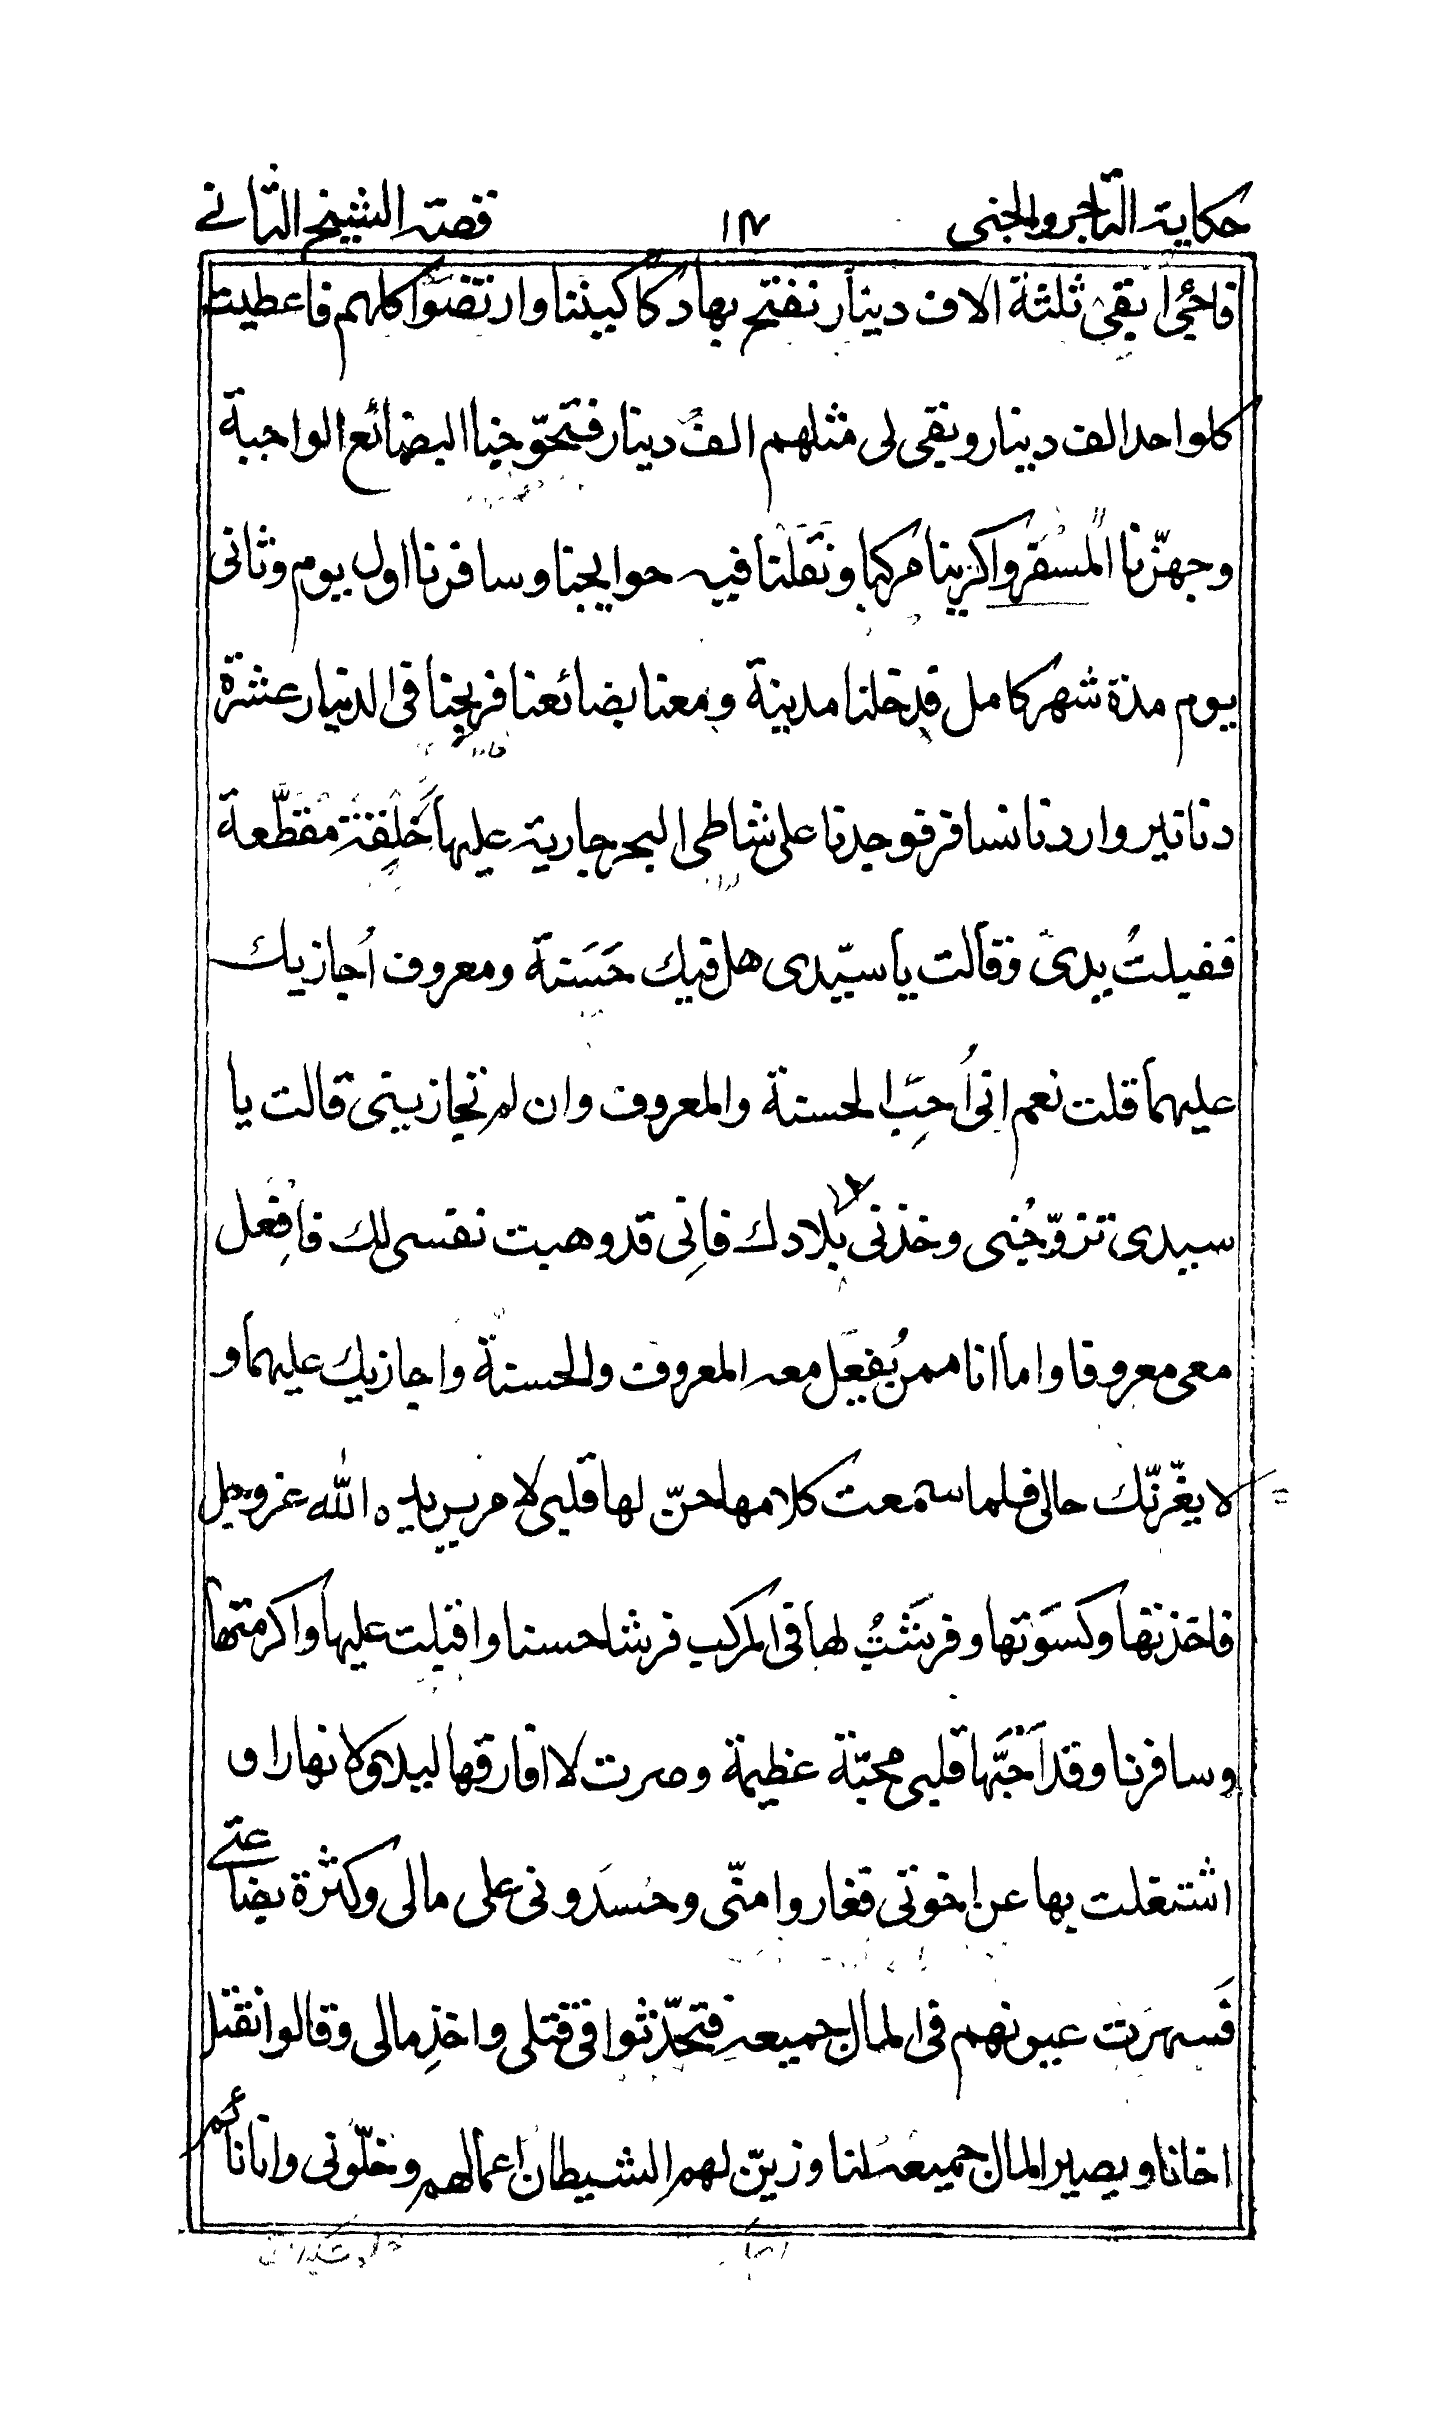 حكاية التاجر والجني ١٧ قصة الشيخ الثاني
فاجئ ابقى ثلثة الاف دينار نفتح بها دكاكيننا وارتضوا كلهم فاعطيت
كلواحد الف دينار وبقى لى مثلهم الف دينار فتحوّجنا البضائع الواجبة
وجهّزنا المسفر واكرينا مركبا ونقلنا فيه حوايجنا وسافرنا اول يوم وثانى
يوم مدة شهر كامل فدخلنا مدينة ومعنا بضائعنا فربحنا فى الدنيار عشرة
دنانير واردنا نسافر فوجدنا على شاطى البحر جارية عليها خلقة مقطّعة
فقبلتْ يدى وقالت يا سيّدى هل فيك حَسَنة ومعروف اُجازيك
عليهما قلت نعم انى اُحِبّ الحسنة والمعروف وان لم تجازينى قالت يا
سيدى تزوّجنى وخذنى بلادك فانِى قد وهبت نفسى لك فافعل
معى معروفا واما انا ممن يُفعَل معه المعروف والحسنة واجازيك عليهما و
لا يغّرنّك حالى فلما سمعت كلامها حنّ لها قلبى لامر يريده الله عز وجل
فاخذتها وكسَوتها وفرَشتُ لها فى المركب فرشا حسنا واقبلت عليها واكرمتها
وسافرنا وقد اَحَبَّها قلبى محبّة عظيمة وصرت لا افارقها ليلا ولا نهارا و
اشتغلت بها عن اخوتى فغاروا منّى وحسَدونى على مالى وكثرة بضاعتى
فَسهرَت عيونهم فى المال جميعه فتحدّثوا فى قتلى واخذِ مالى وقالوا نقتل
اخانا ويصير المال جميعه لنا وزيّن لهم الشيطان اعمالهم وخلّونى وانا نائم